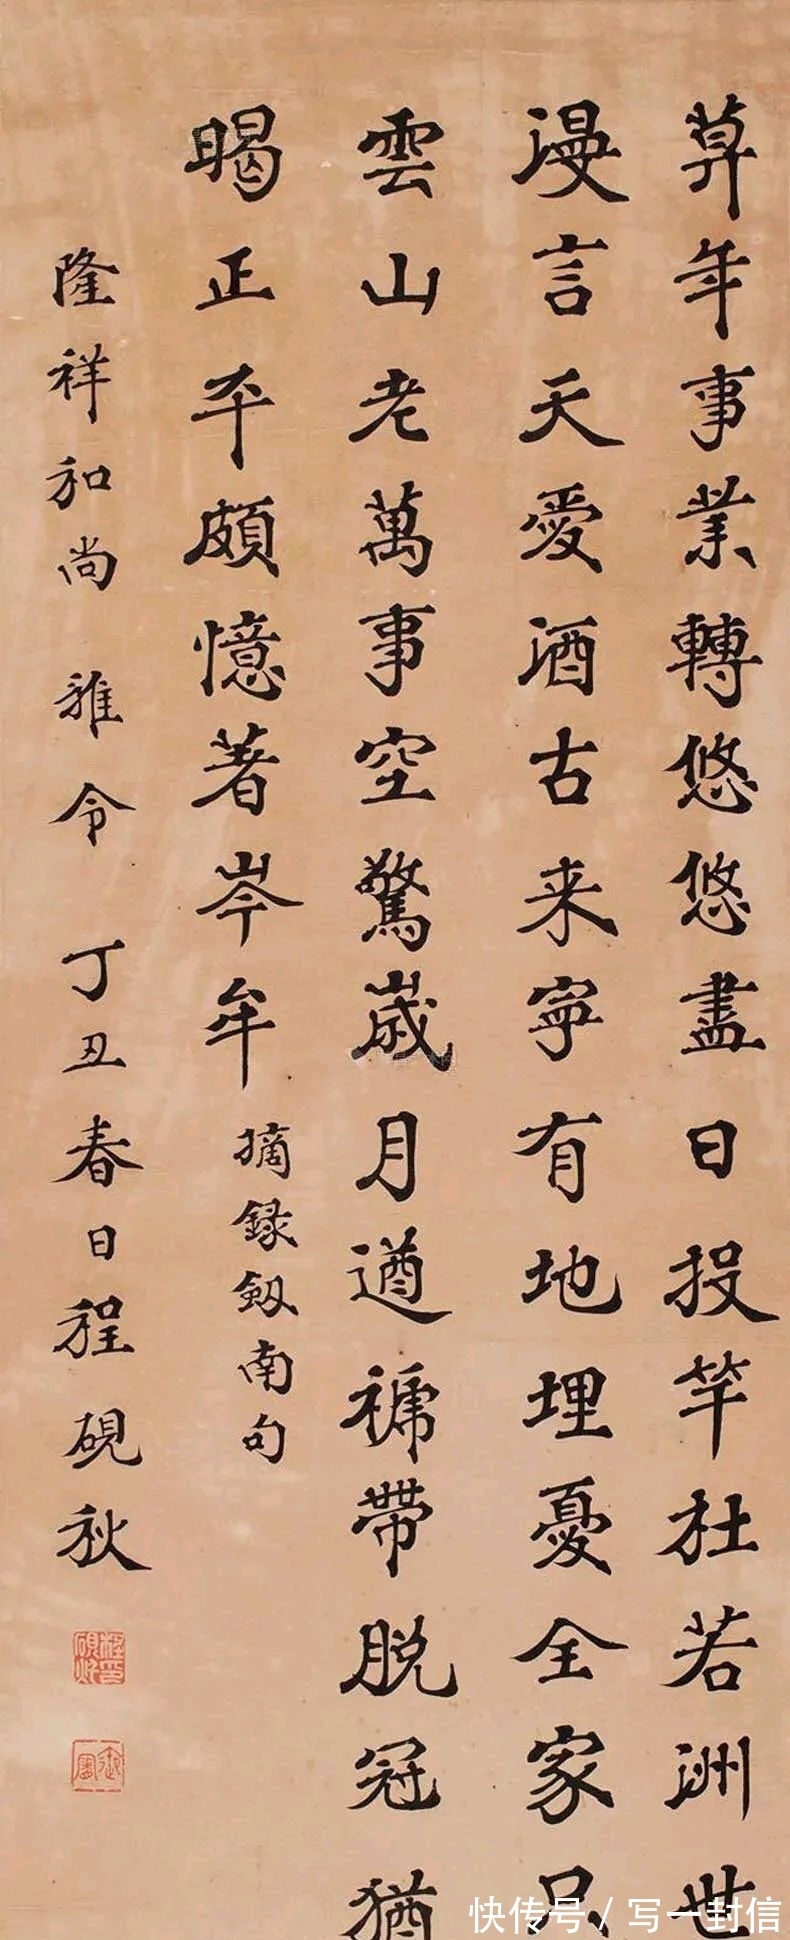 莫年事業轉悠悠盡日投竿杜若洲世
漫言天愛酒古来寧有地埋憂全家只
雲山老萬事空驚歲月遒褫帶脱冠猶
暍正平頗憶著岑牟
摘録劔南句
隆祥和尚 雅令 丁丑春日程硯秋
程硯秋
快传号/写一封信